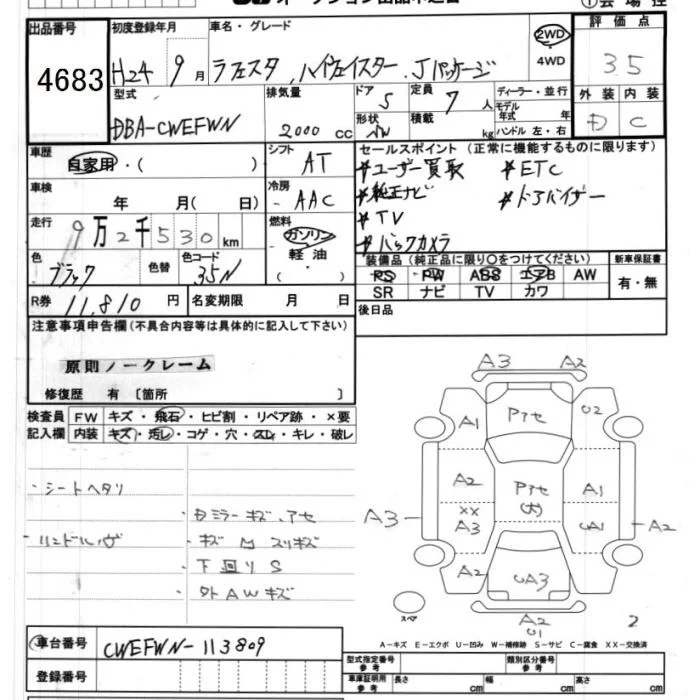 オークション出品申込書
①会場控
出品番号
4683
初度登録年月 H24 9月
車名・グレード ラフェスタ ハイウェイスター Jパッケージ
2WD
4WD
評価点
3.5
外装 内装
D C
型式 DBA-CWEFWN
排気量 2000 cc
ドア 5
形状
定員 7 人
積載 kg
ディーラー・並行
モデル年式 年
ハンドル 左・右
車歴 自家用・( )
シフト AT
車検 年 月( 日)
冷房 AAC
走行 9万2千530km
燃料 ガソリン 軽油 ・( )
色 ブラック 色替 色コード 35N
R券 11,810円 名変期限 月 日
セールスポイント (正常に機能するものに限ります)
*ユーザー買取 *ETC
*純正ナビ *ドアバイザー
*TV
*バックカメラ
装備品 (純正品に限り〇をつけてください)
新車保証書
PS PW ABS エアB AW
SR ナビ TV カワ
有・無
後日品
注意事項申告欄 (不具合内容等は具体的に記入して下さい)
原則ノークレーム
修復歴 有 〔箇所 〕
検査員記入欄
FW キズ・飛石・ヒビ割・リペア跡・×要
内装 キズ・汚レ・コゲ・穴・スレ・キレ・破レ
・シートヘタリ
・ハンドルハゲ
・Dミラーキズ、アセ
・キズ M スリキズ
・下廻りS
・外AWキズ
A3 A2
Pアセ
A1 U2
A2 Pアセ (大) A1
A3 XX A3 UA1 A2
A2 UA3
スペア
A2
U1
2
A-キズ E-エクボ U-凹み W-補修跡 S-サビ C-腐食 XX-交換済
車台番号 CWEFWN-113809
登録番号
型式指定番号 参考 類別区分番号 参考
車庫証明用 参考 長さ cm 幅 cm 高さ cm